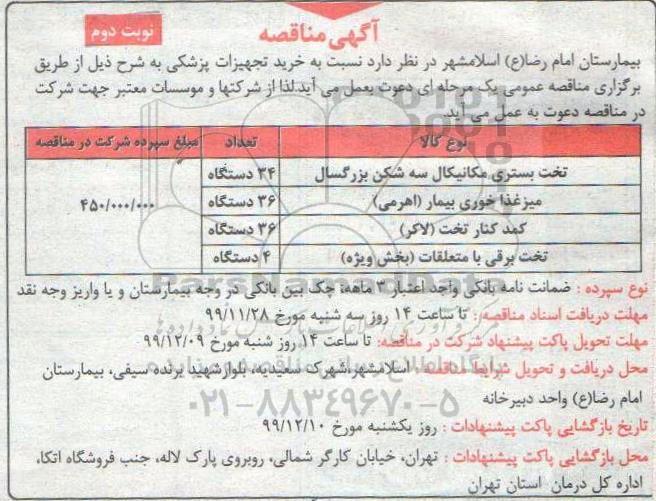 آگهی مناقصه
نوبت دوم
بیمارستان امام رضا(ع) اسلامشهر در نظر دارد نسبت به خرید تجهیزات پزشکی به شرح ذیل از طریق
برگزاری مناقصه عمومی یک مرحله ای دعوت بعمل می آید.لذا از شرکتها و موسسات معتبر جهت شرکت
در مناقصه دعوت به عمل می آید.
نوع کالا تعداد مبلغ سپرده شرکت در مناقصه
تخت بستری مکانیکال سه شکن بزرگسال ۳۴ دستگاه
میزغذا خوری بیمار (اهرمی) ۳۶ دستگاه ۴۵۰/۰۰۰/۰۰۰
کمد کنار تخت (لاکر) ۳۶ دستگاه
تخت برقی با متعلقات (بخش ویژه) ۴ دستگاه
نوع سپرده : ضمانت نامه بانکی واجد اعتبار ۳ ماهه، چک بین بانکی در وجه بیمارستان و یا واریز وجه نقد
مهلت دریافت اسناد مناقصه: تا ساعت ۱۴ روز سه شنبه مورخ ۹۹/۱۱/۲۸
مهلت تحویل پاکت پیشنهاد شرکت در مناقصه: تا ساعت ۱۴ روز شنبه مورخ ۹۹/۱۲/۰۹
محل دریافت و تحویل شرایط مناقصه: اسلامشهر،شهرک سعیدیه، بلوارشهید برنده سیفی، بیمارستان
امام رضا(ع) واحد دبیرخانه
تاریخ بازگشایی پاکت پیشنهادات : روز یکشنبه مورخ ۹۹/۱۲/۱۰
محل بازگشایی پاکت پیشنهادات : تهران، خیابان کارگر شمالی، روبروی پارک لاله، جنب فروشگاه اتکا،
اداره کل درمان استان تهران
ParsNamadData
۰۲۱-۸۸۳۴۹۶۷۰-۵